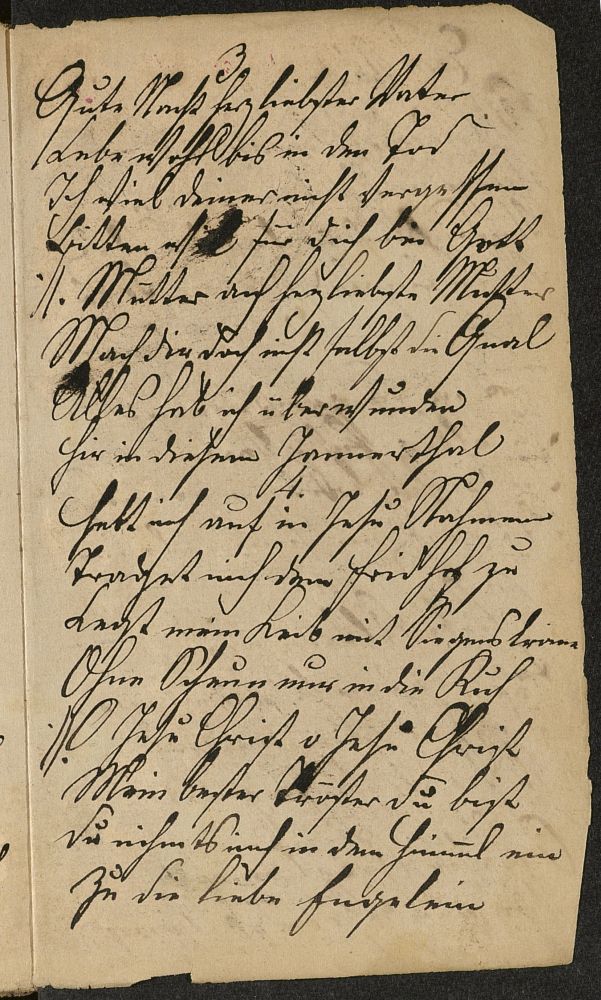 3
Gute Nacht herzliebster Vater
Lebe wohl bis in den Tod
Ich viel deiner nicht vergessen
bitten für dich bei Gott
//. Mutter ach herzliebste Mutter
Mach dir doch nicht selbst die Qual
Alles hab ich überwunden
hir in diesem Jamerthal
4.
hebt mich auf in Jesu Nahmen
traget mich dem Fridhof zu
Legt mein Leib mit
Ohne nur in die Ruh
//: O Jesu Christ o Jesu Christ
Mein bester Tröster du bist
du nihmts mich in den Himmel ein
Zu die liebe Engelein